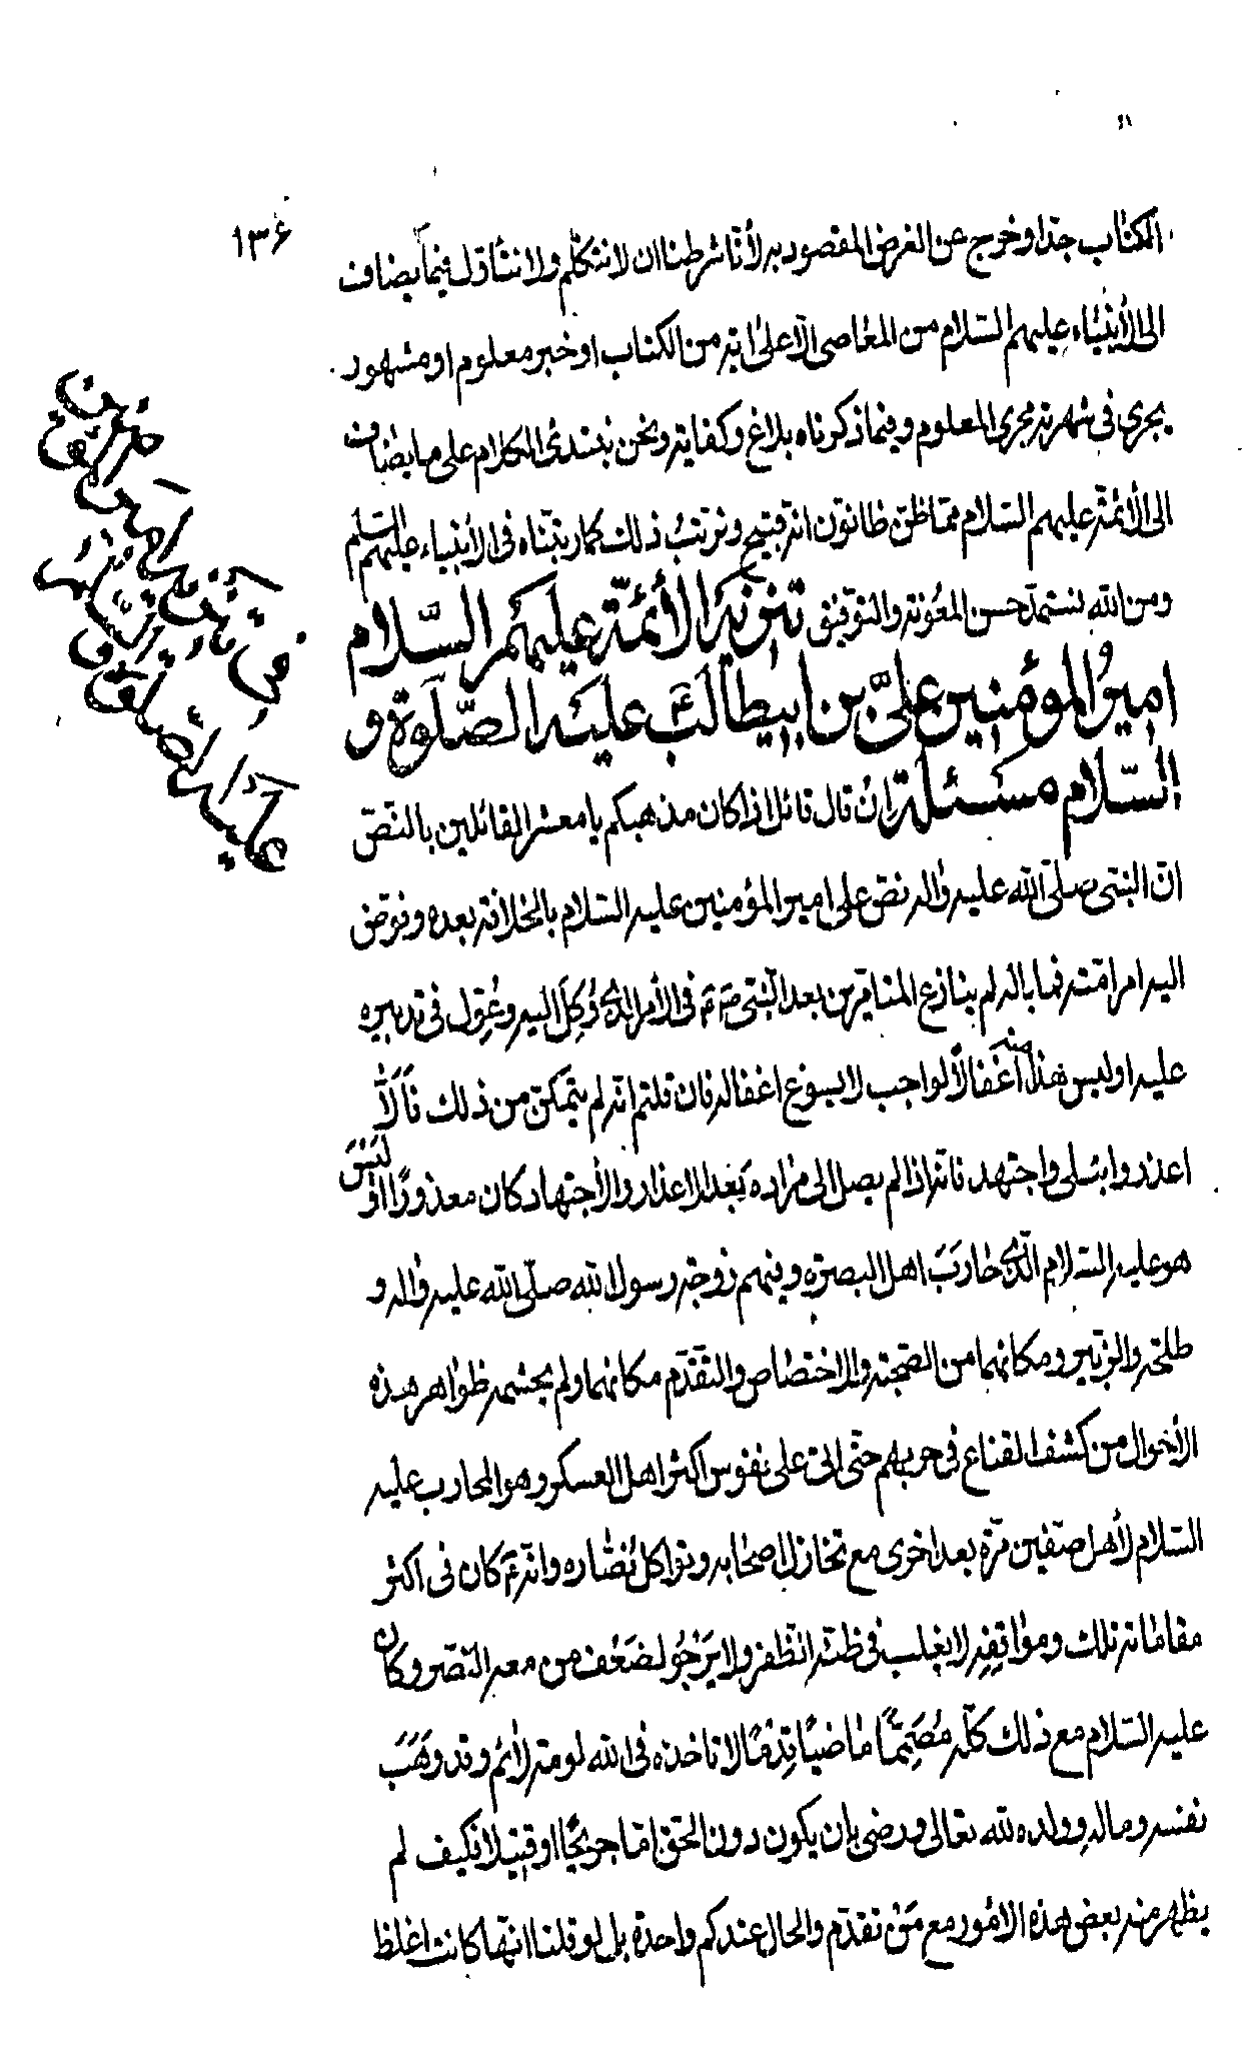 ١٣۶
الكتاب جدا وخرج عن الغرض المقصود به لأنا شرطنا ان لا نتكلم ولا نتأول فيما يضاف
الى الأنبياء عليهم السلام من المعاصى الا على اية من الكتاب او خبر معلوم او مشهور
يجرى فى شهرته مجرى المعلوم وفيما ذكرناه بلاغ وكفاية ونحن نبتدئ الكلام على ما يضاف
الى الأئمة عليهم السلام مما ظن ظانون انه قبيح ونرتب ذلك كما رتبناه فى الأنبياء عليهم السلم
ومن الله نستمد حسن المعونة والتوفيق تنزيه الأئمة عليهم السلام
امير المؤمنين علىّ بن ابيطالب عليه الصلوة و
السلام مسئلة ان قال قائل اذا كان مذهبكم يا معشر القائلين بالنصّ
انّ النبىّ صلّى الله عليه واله نصّ على امير المؤمنين عليه السلام بالخلافة بعده وفوّض
اليه امر امّته فما باله لم ينازع المتامّرين بعد النبىّ ص م فى الأمر الذى وُكِلَ اليه وعُوّل فى تدبيره
عليه اوليس هذا منه اغفالًا لواجب لا يسوغ اغفاله فان قلتم انه لم يتمكّن من ذلك فَهَلّا
اعذر وابلى واجتهد فانّه اذا لم يصل الى مراده بَعْدَ الاعذار والأجتهاد كان معذورًا اوَ لَيْسَ
هو عليه السلام الّذى حارَبَ اهل البصرة وفيهم زوجة رسول الله صلّى الله عليه واله و
طلحة والزّبير ومكانهما من الصّحبة والاختصاص والتقدّم مكانهما ولم يحشمه ظواهر هذه
الأحوال من كشف القناع فى حربهم حتّى اتى على نفوس اكثر اهل العسكر وهو المحارب عليه
السلام لأهل صفّين مرّة بعد اخرى مع تخاذل اصحابه وتواكل نُصّاره وانّه ع كان فى اكثر
مقاماته تلك ومواقِفِهِ لا يغلب فى ظنّه الظفر ولا يَرْجُو لضَعْف من معه النّصر وكان
عليه السلام مع ذلك كلّه مُصَمِّمًا ماضيًا قِدْمًا لا تاخذه فى الله لومة لائم وقد وَهَبَ
نفسه وماله وولده لله تعالى ورضى بان يكون دون الحق امّا جريحًا او قتيلا فكيف لم
يظهر منه بعض هذه الامور مع مَنْ تقدّم والحال عندكم واحدة بل لو قلنا انّها كانت اغلظ